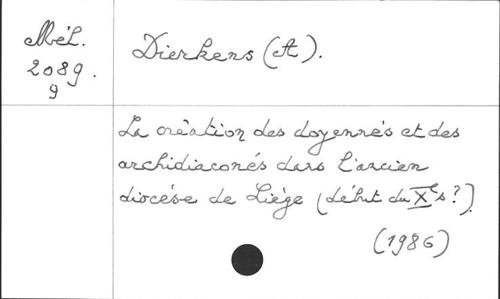 Mél.
2089.
9
Dierkens (A).
La création des doyennés et des
archidiaconés dans l'ancien
diocèse de Liège (début du Xe s?)
(1986)